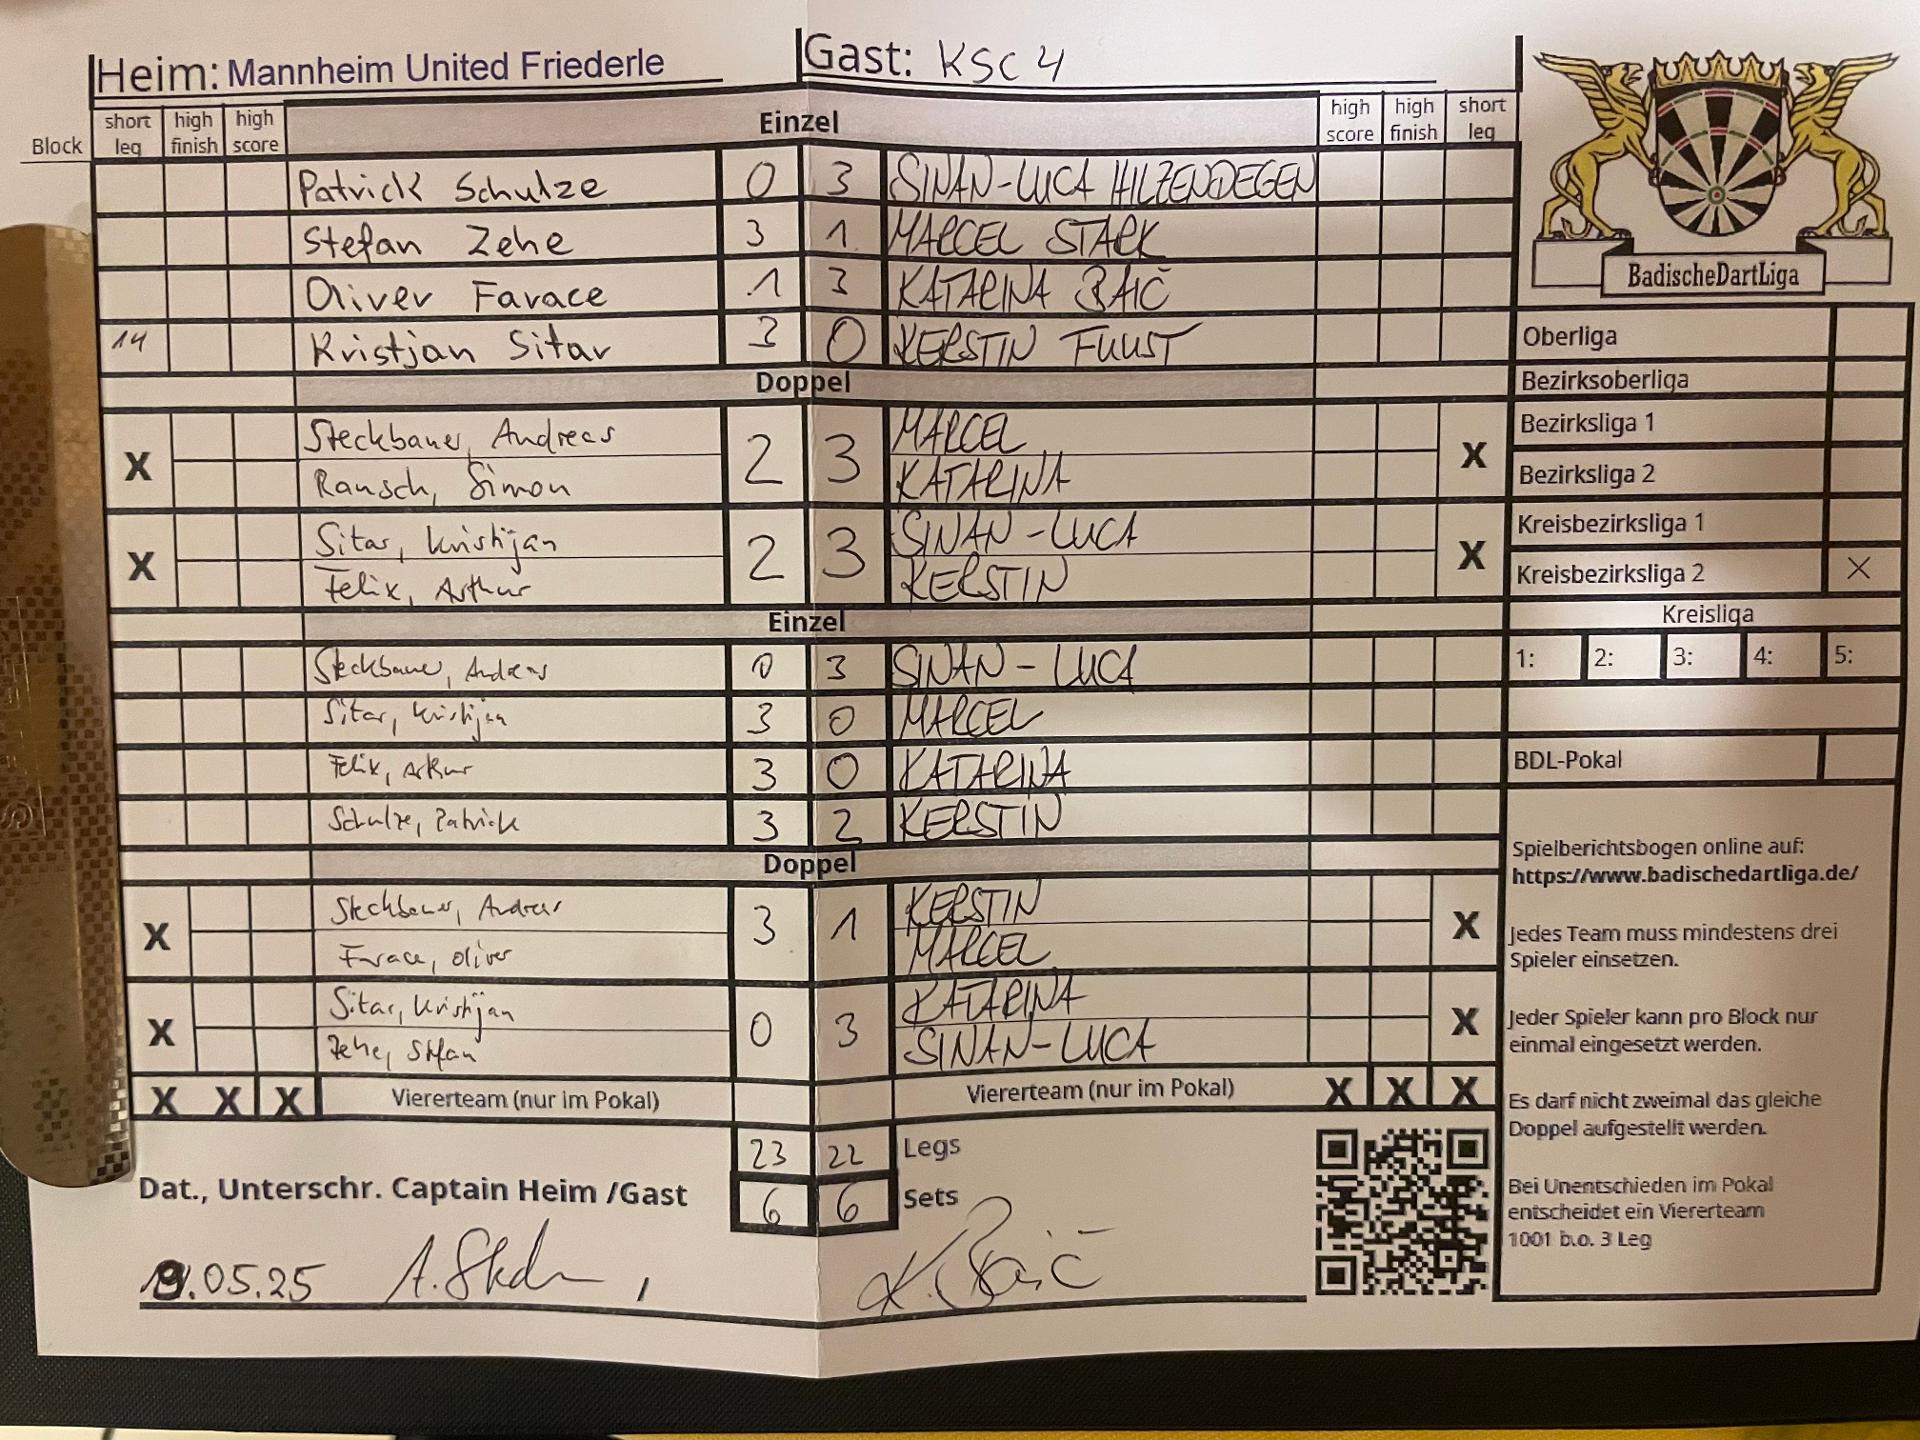 Heim: Mannheim United Friederle Gast: KSC 4
Block short leg high finish high score Einzel high score high finish short leg
Patrick Schulze 0 3 SINAN-LUCA HILZENDEGEN
Stefan Zehe 3 1 MARCEL STARK
Oliver Farace 1 3 KATARINA BAIĆ
14 Kristjan Sitar 3 0 KERSTIN FUUST
Doppel
X Steckbauer, Andreas 2 3 MARCEL X
Rausch, Simon KATARINA
X Sitar, Kristijan 2 3 SINAN-LUCA X
Felix, Arthur KERSTIN
Einzel
Steckbauer, Andreas 0 3 SINAN-LUCA
Sitar, Kristijan 3 0 MARCEL
Felix, Arthur 3 0 KATARINA
Schulze, Patrick 3 2 KERSTIN
Doppel
X Steckbauer, Andreas 3 1 KERSTIN X
Farace, Oliver MARCEL
X Sitar, Kristijan 0 3 KATARINA X
Zehe, Stefan SINAN-LUCA
X X X Viererteam (nur im Pokal) Viererteam (nur im Pokal) X X X
23 22 Legs
6 6 Sets
Dat., Unterschr. Captain Heim /Gast
.05.25
K. Baić
BadischeDartLiga
Oberliga
Bezirksoberliga
Bezirksliga 1
Bezirksliga 2
Kreisbezirksliga 1
Kreisbezirksliga 2 X
Kreisliga
1: 2: 3: 4: 5:
BDL-Pokal
Spielberichtsbogen online auf:
https://www.badischedartliga.de/
Jedes Team muss mindestens drei
Spieler einsetzen.
Jeder Spieler kann pro Block nur
einmal eingesetzt werden.
Es darf nicht zweimal das gleiche
Doppel aufgestellt werden.
Bei Unentschieden im Pokal
entscheidet ein Viererteam
1001 b.o. 3 Leg